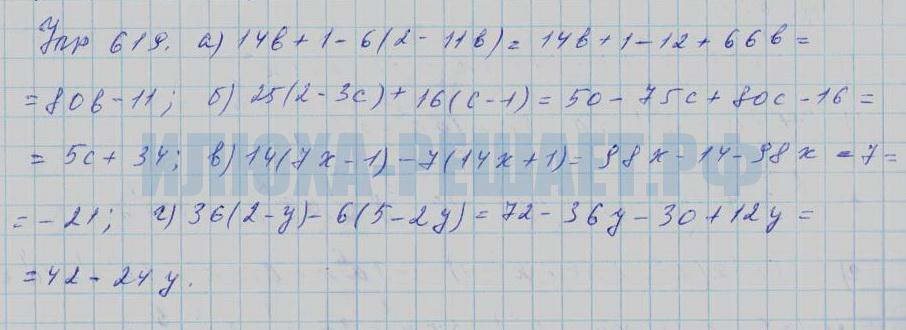 Упр 619. а) 14в + 1 - 6(2 - 11в) = 14в + 1 - 12 + 66в =
= 80в - 11; б) 25(2 - 3с) + 16(с - 1) = 50 - 75с + 80с - 16 =
= 5с + 34; в) 14(7х - 1) - 7(14х + 1) = 98х - 14 - 98х - 7 =
ИЛЮХА-РЕШАЕТ.РФ
= - 21; г) 36(2 - у) - 6(5 - 2у) = 72 - 36у - 30 + 12у =
= 42 - 24у.